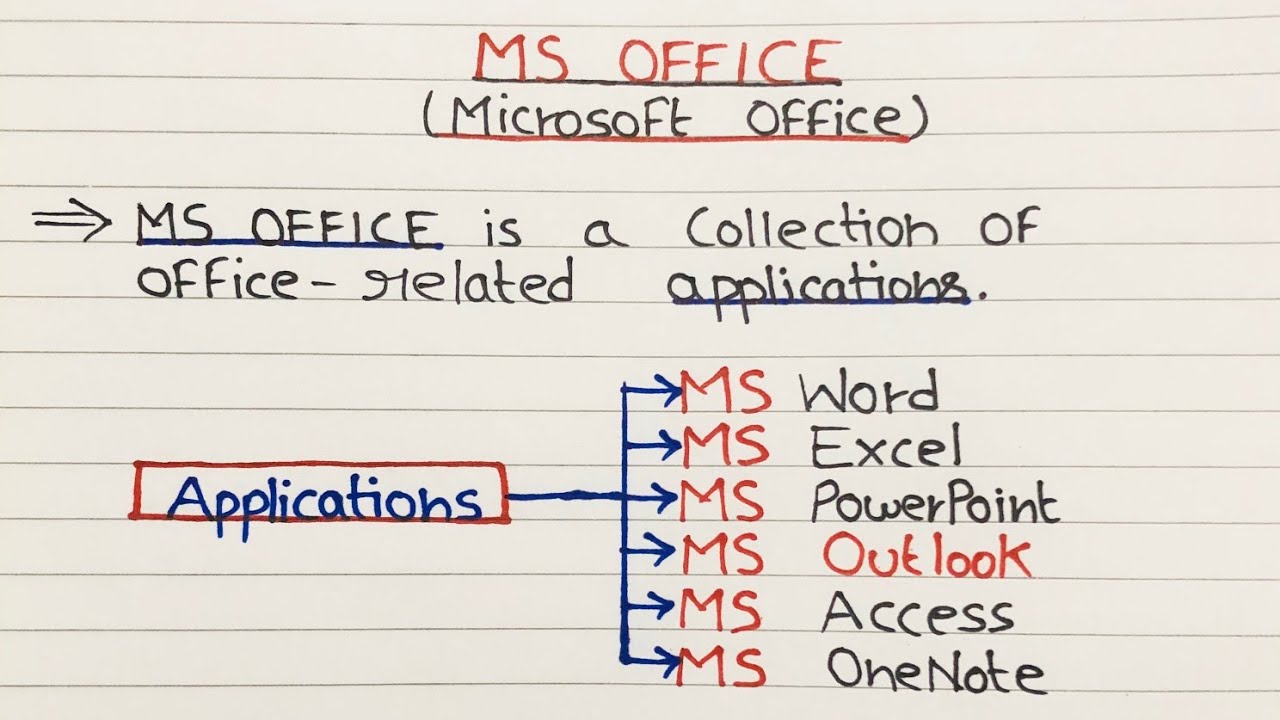 MS OFFICE
(Microsoft Office)
⇒ MS OFFICE is a Collection OF
Office-related applications.
Applications
MS Word
MS Excel
MS PowerPoint
MS Outlook
MS Access
MS OneNote